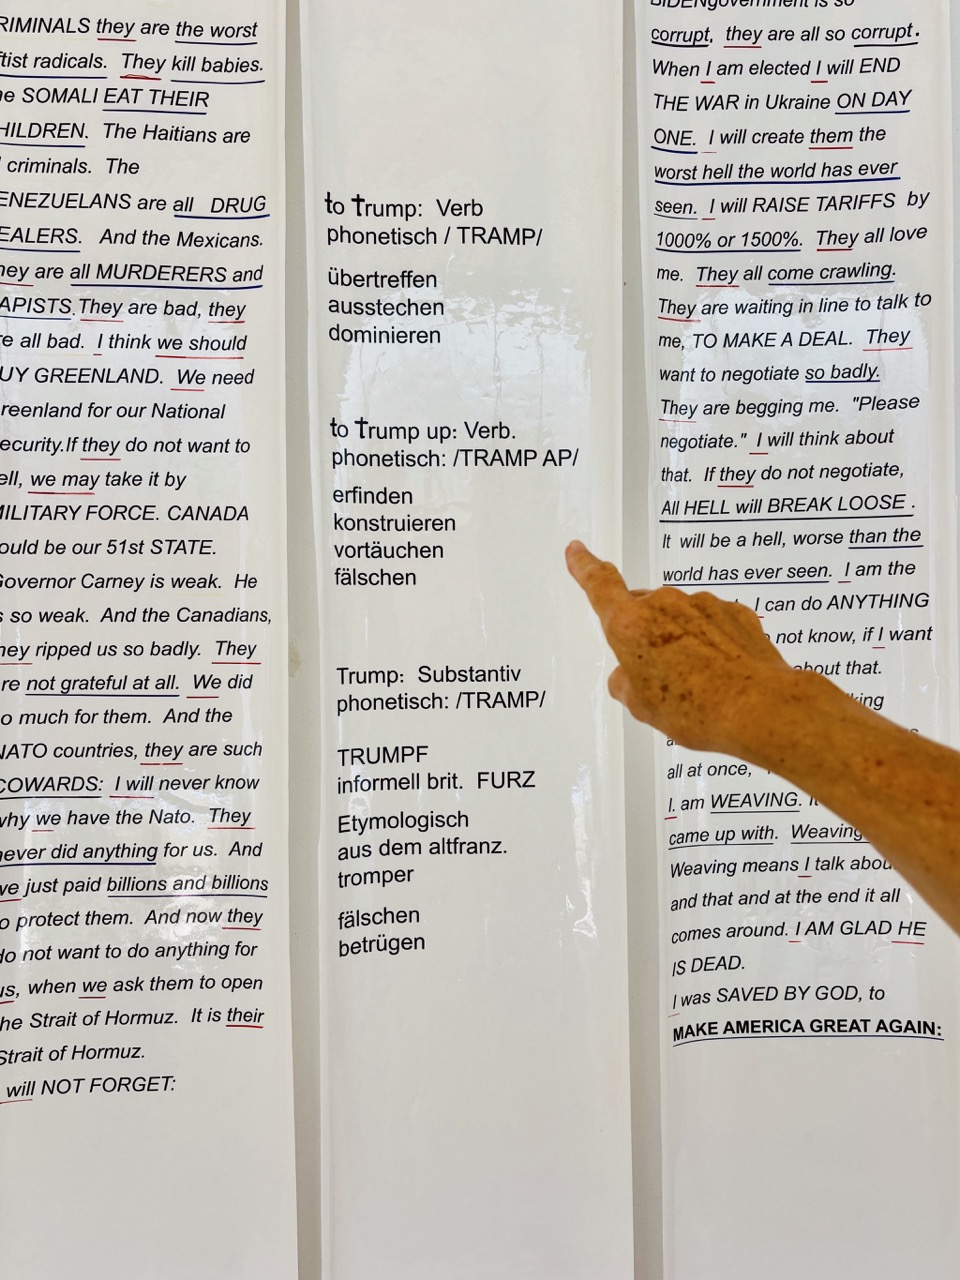 RIMINALS they are the worst
ftist radicals. They kill babies.
he SOMALI EAT THEIR
HILDREN. The Haitians are
criminals. The
ENEZUELANS are all DRUG
EALERS. And the Mexicans.
hey are all MURDERERS and
APISTS. They are bad, they
re all bad. I think we should
UY GREENLAND. We need
reenland for our National
ecurity.If they do not want to
ell, we may take it by
MILITARY FORCE. CANADA
ould be our 51st STATE.
Governor Carney is weak. He
s so weak. And the Canadians,
hey ripped us so badly. They
re not grateful at all. We did
o much for them. And the
NATO countries, they are such
COWARDS: I will never know
why we have the Nato. They
never did anything for us. And
we just paid billions and billions
o protect them. And now they
do not want to do anything for
us, when we ask them to open
he Strait of Hormuz. It is their
Strait of Hormuz.
will NOT FORGET:
to Trump: Verb
phonetisch / TRAMP/
übertreffen
ausstechen
dominieren
to Trump up: Verb.
phonetisch: /TRAMP AP/
erfinden
konstruieren
vortäuchen
fälschen
Trump: Substantiv
phonetisch: /TRAMP/
TRUMPF
informell brit. FURZ
Etymologisch
aus dem altfranz.
tromper
fälschen
betrügen
BIDENgovernment is so
corrupt, they are all so corrupt.
When I am elected I will END
THE WAR in Ukraine ON DAY
ONE. I will create them the
worst hell the world has ever
seen. I will RAISE TARIFFS by
1000% or 1500%. They all love
me. They all come crawling.
They are waiting in line to talk to
me, TO MAKE A DEAL. They
want to negotiate so badly.
They are begging me. "Please
negotiate." I will think about
that. If they do not negotiate,
All HELL will BREAK LOOSE .
It will be a hell, worse than the
world has ever seen. I am the
I can do ANYTHING
not know, if I want
about that.
all at once,
I. am WEAVING.
came up with. Weaving
Weaving means I talk abou
and that and at the end it all
comes around. I AM GLAD HE
IS DEAD.
I was SAVED BY GOD, to
MAKE AMERICA GREAT AGAIN: